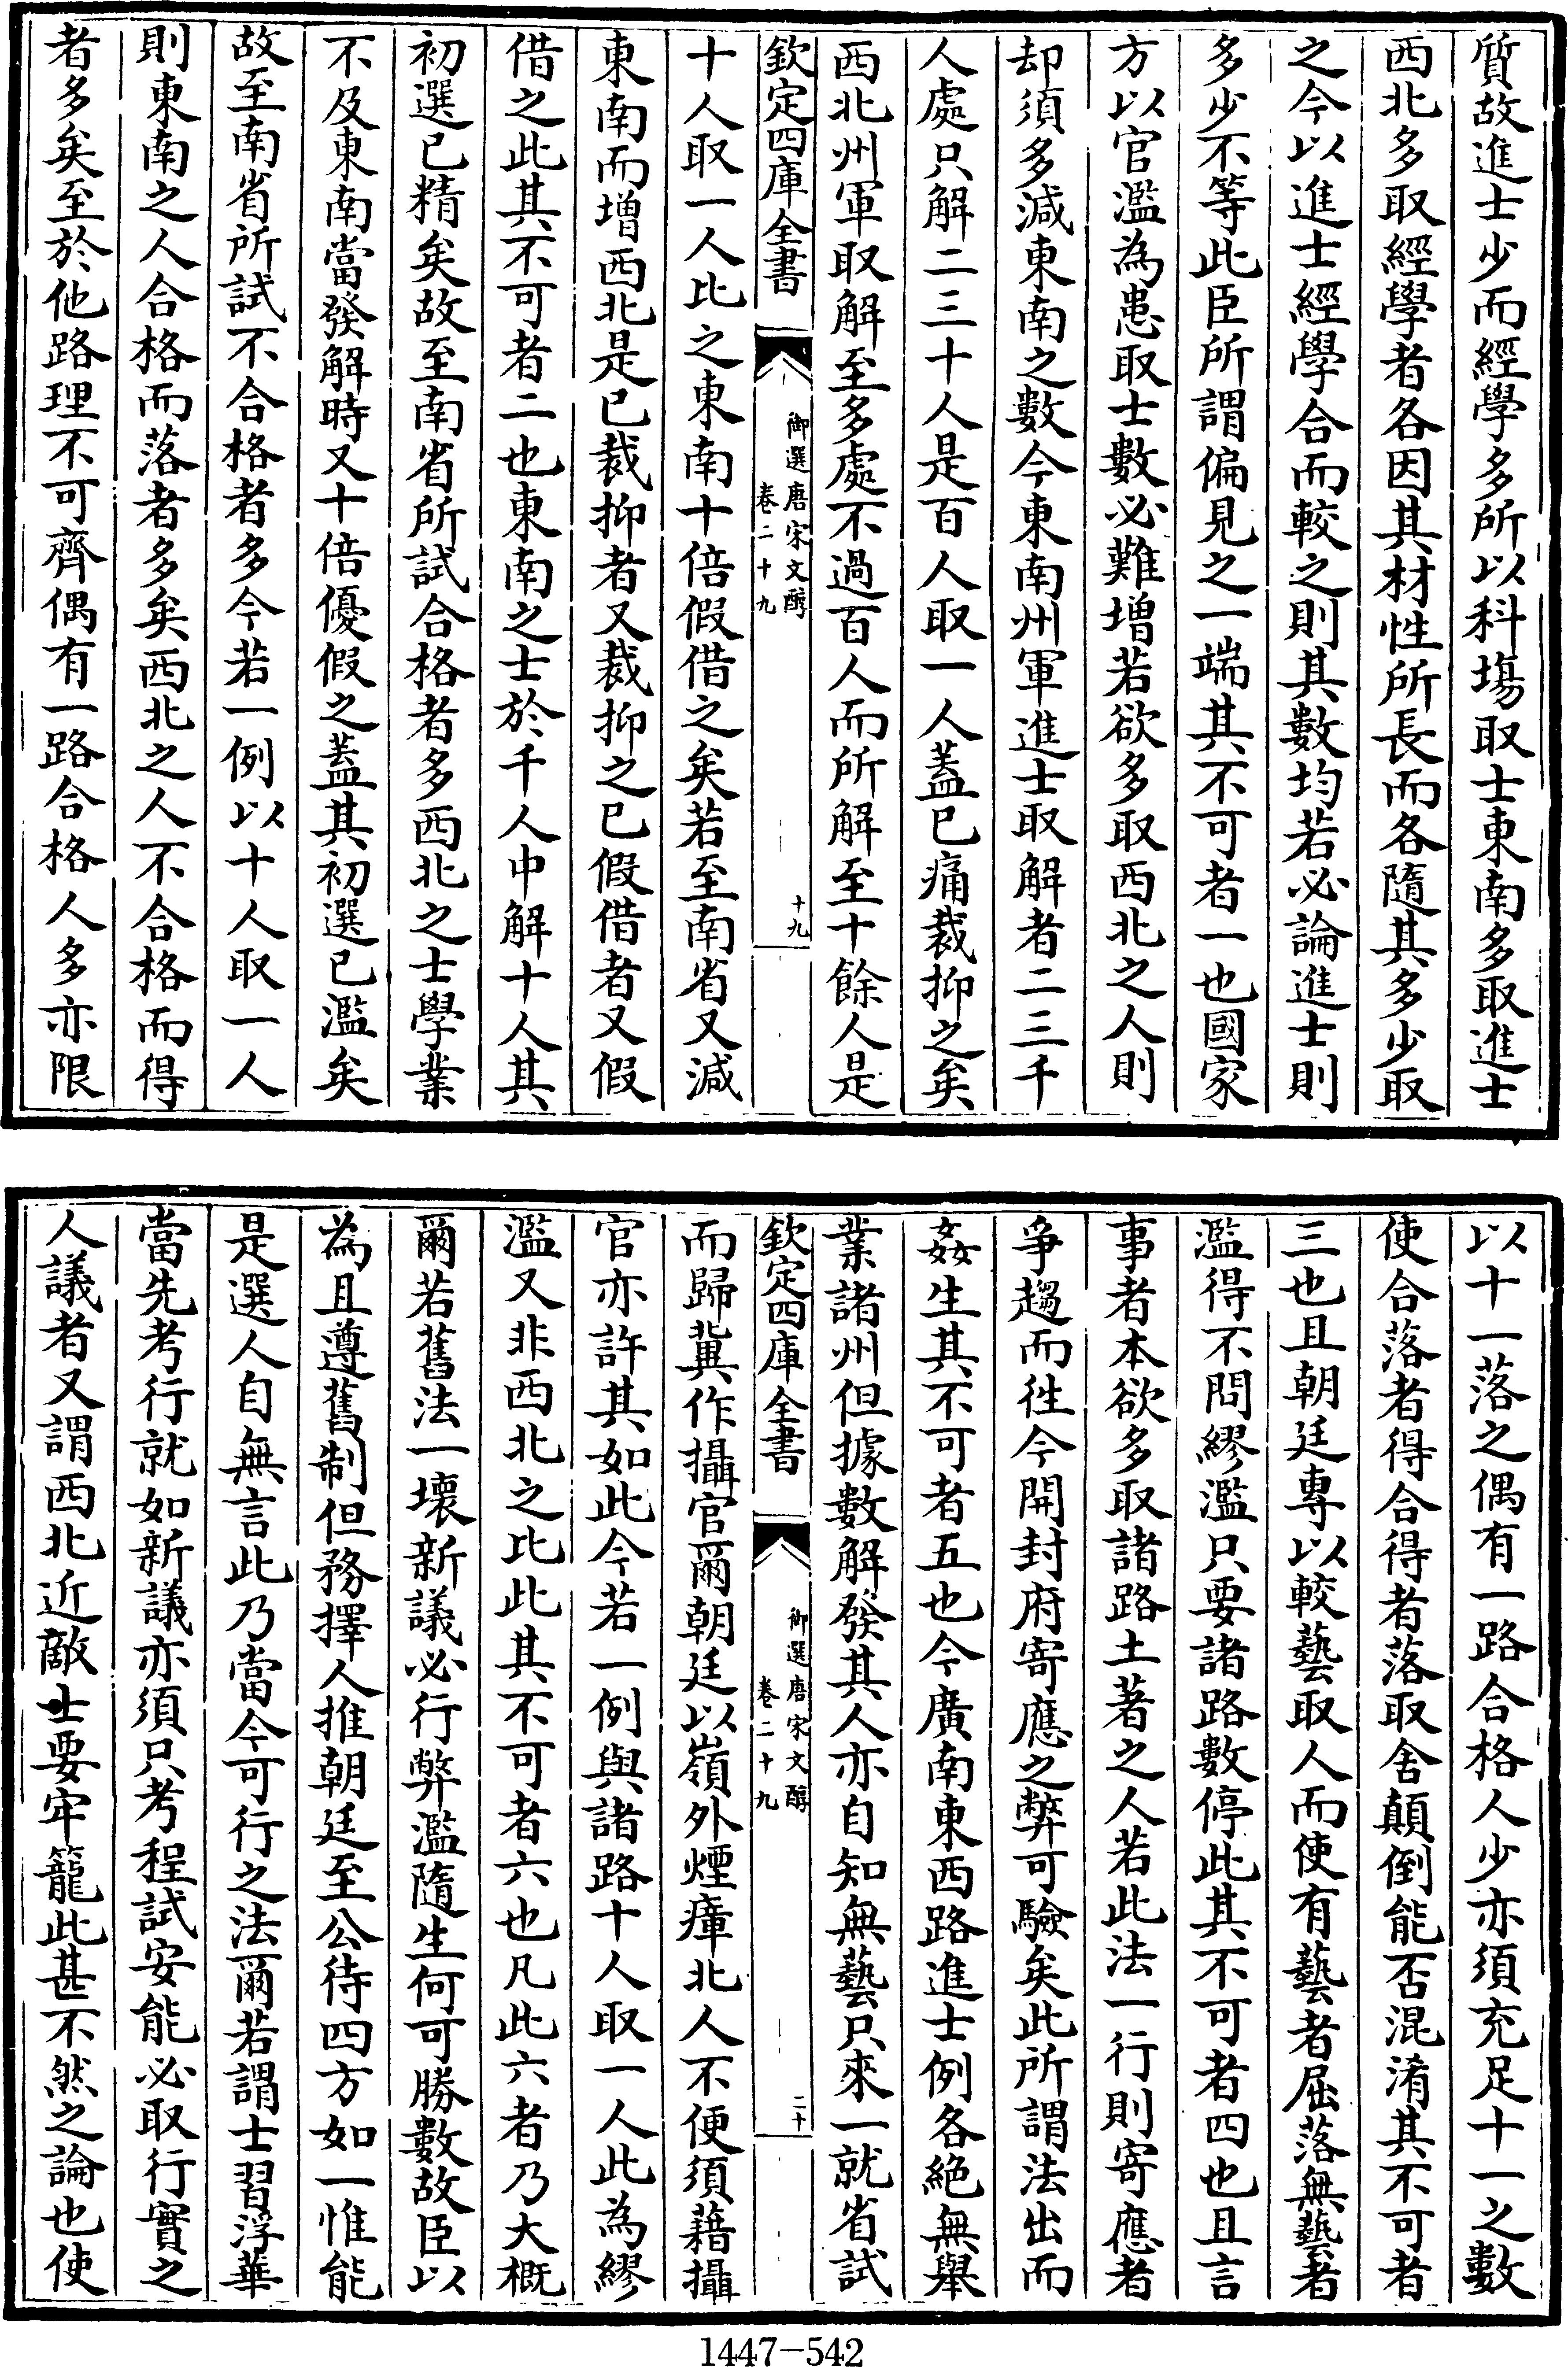 質故進士少而經學多所以科塲取士東南多取進士
西北多取經學者各因其材性所長而各隨其多少取
之今以進士經學合而較之則其數均若必論進士則
多少不等此臣所謂偏見之一端其不可者一也國家
方以官濫為患取士數必難增若欲多取西北之人則
却須多減東南之數今東南州軍進士取解者二三千
人處只解二三十人是百人取一人蓋已痛裁抑之矣
西北州軍取解至多處不過百人而所解至十餘人是
欽定四庫全書
御選唐宋文醇
卷二十九
十九
十人取一人比之東南十倍假借之矣若至南省又減
東南而增西北是已裁抑者又裁抑之已假借者又假
借之此其不可者二也東南之士於千人中解十人其
初選已精矣故至南省所試合格者多西北之士學業
不及東南當發解時又十倍優假之蓋其初選已濫矣
故至南省所試不合格者多今若一例以十人取一人
則東南之人合格而落者多矣西北之人不合格而得
者多矣至於他路理不可齊偶有一路合格人多亦限
以十一落之偶有一路合格人少亦須充足十一之數
使合落者得合得者落取舍顛倒能否混淆其不可者
三也且朝廷專以較藝取人而使有藝者屈落無藝者
濫得不問繆濫只要諸路數停此其不可者四也且言
事者本欲多取諸路土著之人若此法一行則寄應者
爭趨而徃今開封府寄應之弊可驗矣此所謂法出而
姦生其不可者五也今廣南東西路進士例各絕無舉
業諸州但據數解發其人亦自知無藝只來一就省試
欽定四庫全書
御選唐宋文醇
卷二十九
二十
而歸冀作攝官爾朝廷以嶺外煙瘴北人不便須藉攝
官亦許其如此今若一例與諸路十人取一人此為繆
濫又非西北之比此其不可者六也凡此六者乃大概
爾若舊法一壞新議必行弊濫隨生何可勝數故臣以
為且遵舊制但務擇人推朝廷至公待四方如一惟能
是選人自無言此乃當今可行之法爾若謂士習浮華
當先考行就如新議亦須只考程試安能必取行實之
人議者又謂西北近敵士要牢籠此甚不然之論也使
1447-542